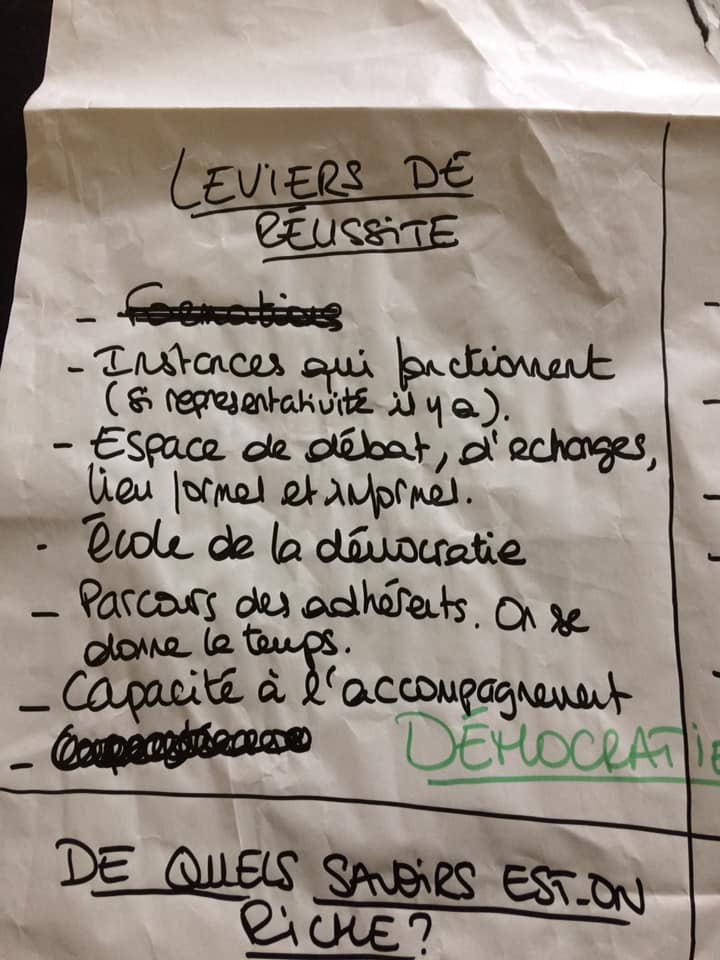 LEVIERS DE
RÉUSSITE
- Formations
- Instances qui fonctionnent
(si representativité il y a).
- Espace de débat, d'echanges,
lieu formel et informel.
- école de la démocratie
- Parcours des adhérents. On se
donne le temps.
- Capacité à l'accompagnement
-
DÉMOCRATIE
DE QUELS SAVOIRS EST-ON
RICHE?